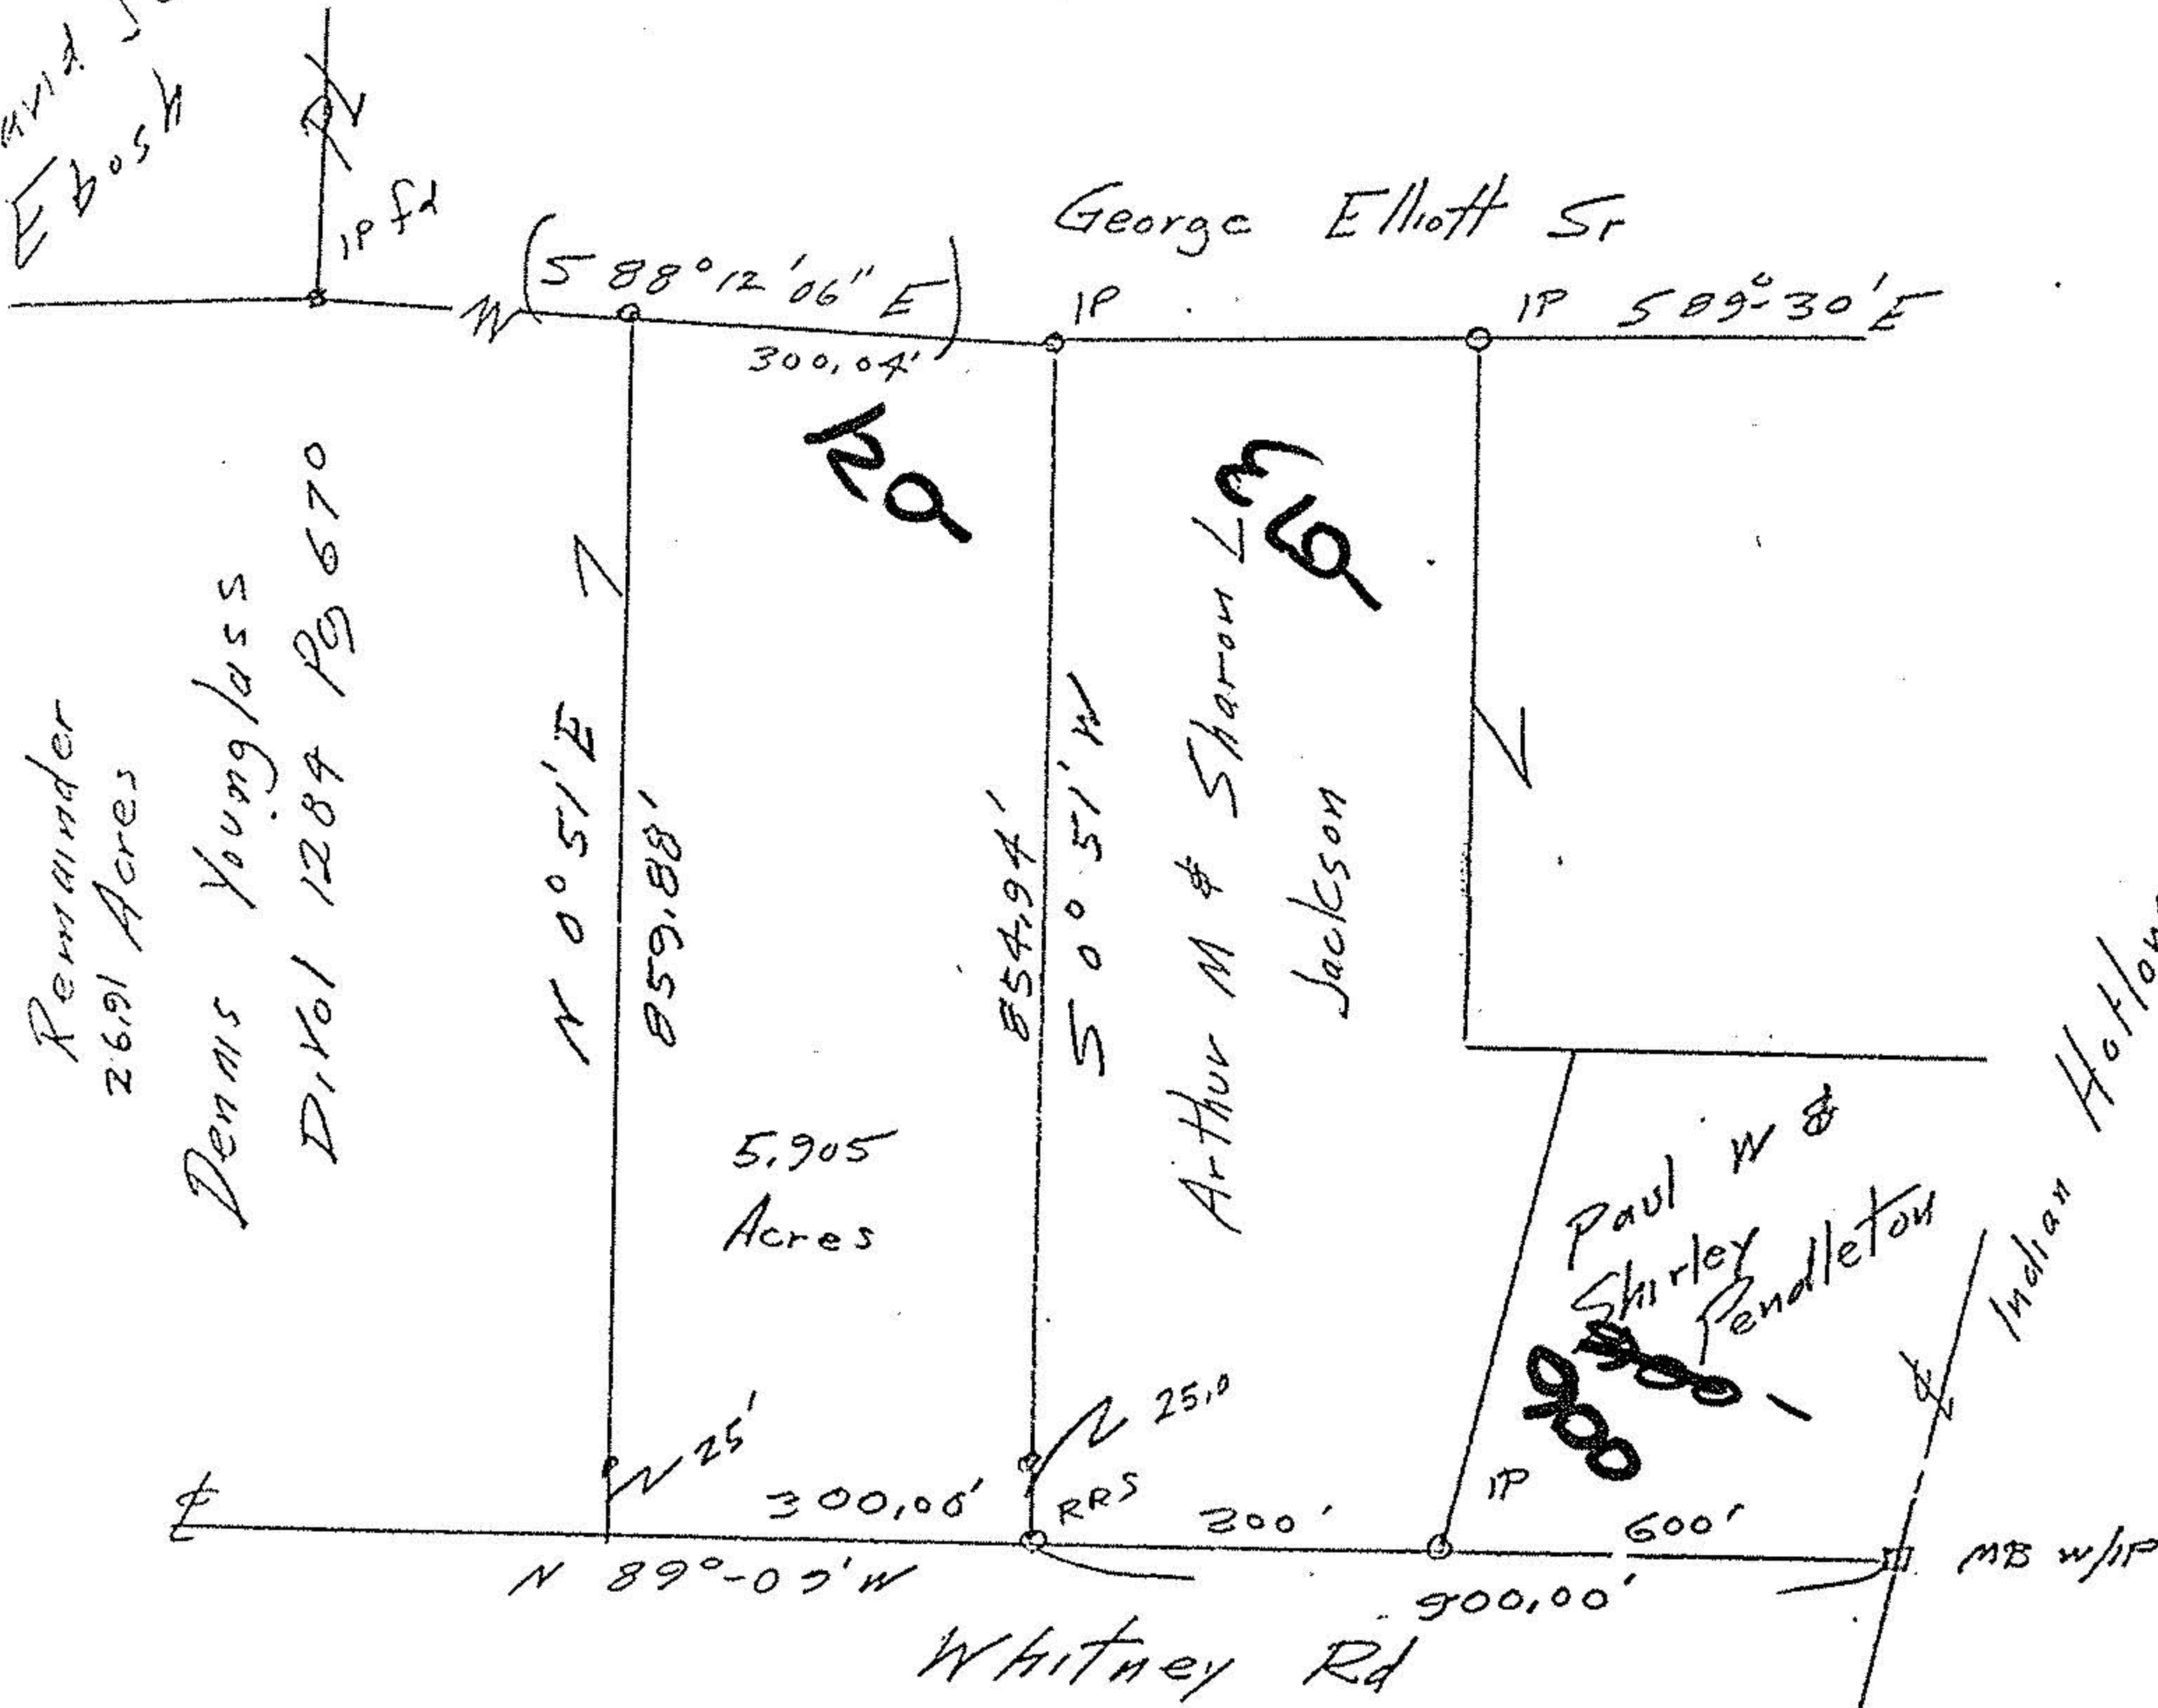 Ebosh
IP fd
George Elliott Sr
(S 88° 12' 06" E)
IP
IP
S 89°-30' E
300.04'
Remainder
26.91 Acres
Dennis Younglass
D. Vol 1284 Pg 670
N 0° 51' E
859.88'
854.94'
S 0° 51' W
Arthur M & Sharon L
Jackson
5.905
Acres
Paul W &
Shirley
Pendleton
Indian
25'
25.0
300.00'
RRS
300'
IP
600'
MB w/IP
N 89°-09' W
900.00'
Whitney Rd